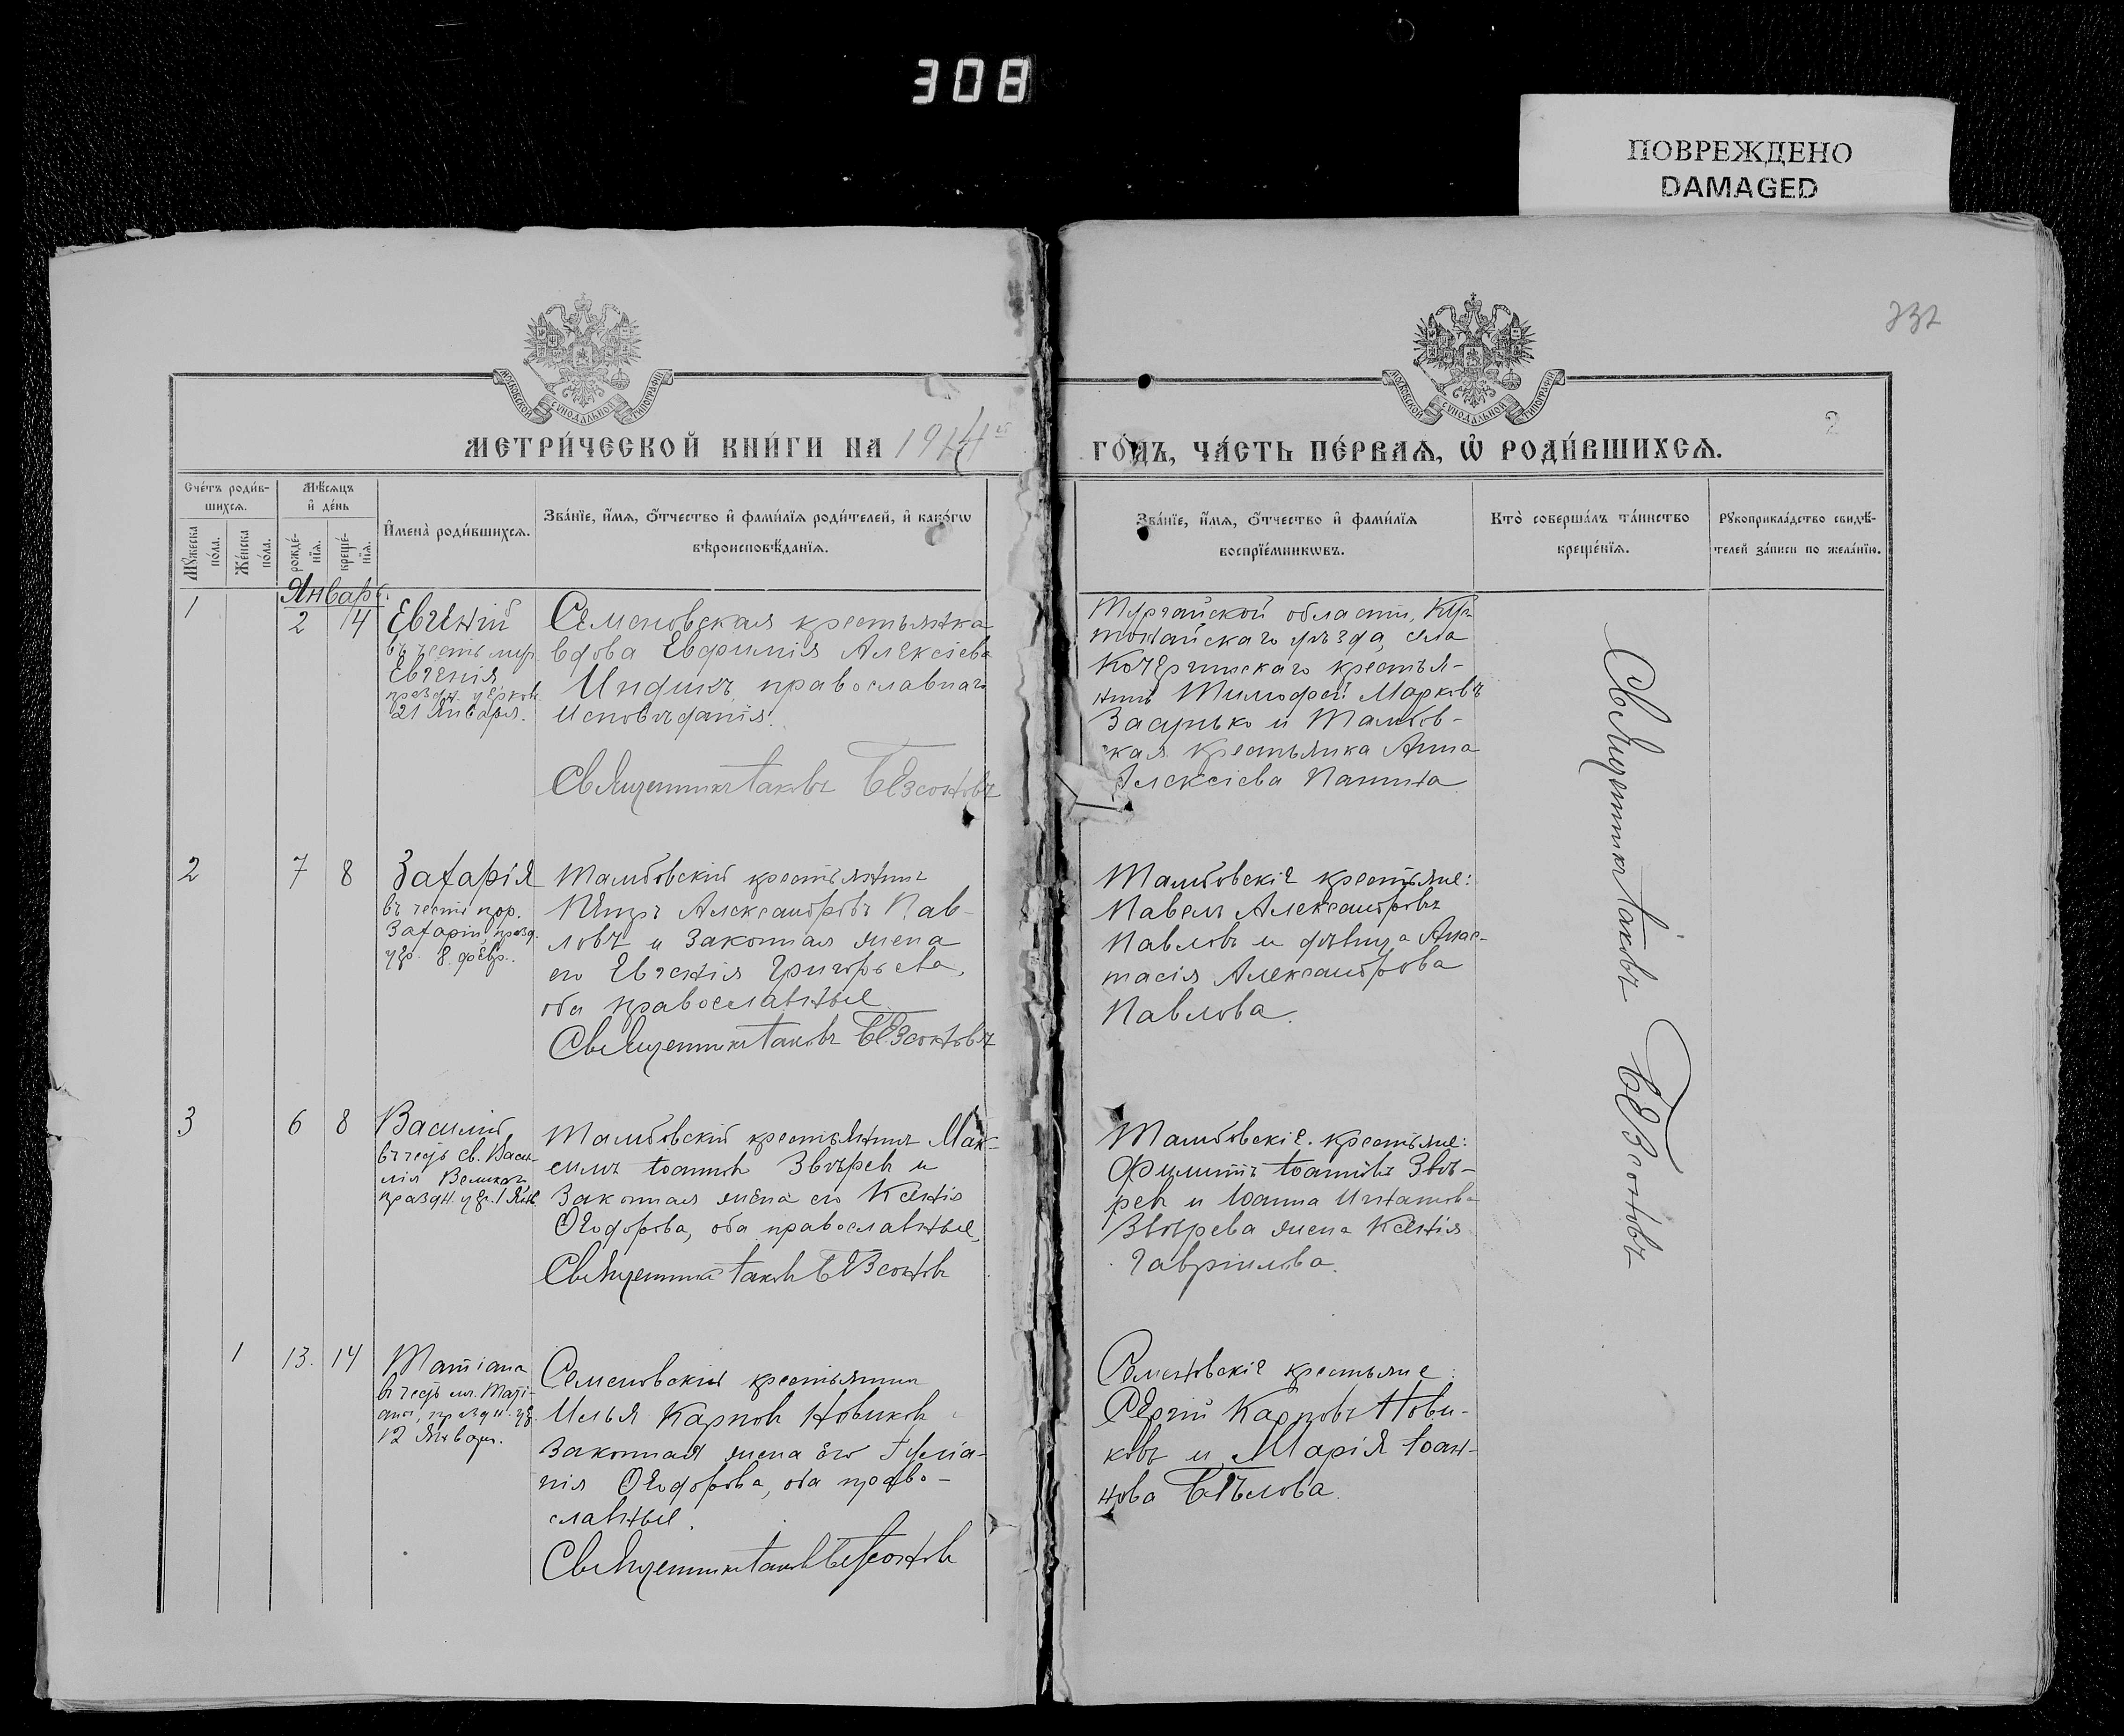 308
ПОВРЕЖДЕНО
DAMAGED
МОСКОВСКОЙ СѴНОДАЛЬНОЙ ТИПОГРАФІИ
МОСКОВСКОЙ СѴНОДАЛЬНОЙ ТИПОГРАФІИ
2
МЕТРИ́ЧЕСКОЙ КНИ́ГИ НА 1914
ГО́ДЪ, ЧА́СТЬ ПЕ́РВАѦ, Ѡ҆ РОДИ́ВШИХСѦ.
Сче́тъ роди́в-
шихсѧ.
Мꙋ́жеска по́ла.
Же́нска по́ла.
Мѣ́сѧцъ
и҆ де́нь
рожде́-нїѧ.
креще́-нїѧ.
И҆мена̀ роди́вшихсѧ.
Зва́нїе, и҆́мѧ, ѻ҆́тчество и҆ фами́лїѧ роди́телей, и҆ како́гѡ
вѣроисповѣ́данїѧ.
Зва́нїе, и҆́мѧ, ѻ҆́тчество и҆ фами́лїѧ
воспрїе́мникѡвъ.
Кто̀ соверша́лъ та́инство
креще́нїѧ.
Рꙋкоприкла́дство свидѣ́-
телей за́писи по жела́нїю.
Январь.
1 2 14
Евгеній
въ честь муч.
Евгенія
праздн. церков.
21 Января.
Семеновская крестьянка
вдова Евфимія Алексіева
Индикъ православнаго
исповѣданія.
Священникъ Іаковъ Безсоновъ
Тургайской области, Кус-
танайскаго уѣзда, села
крестья-
нинъ Тимофей Марковъ
Засунько и Тамбов-
ская крестьянка Анна
Алексіева Панина
2 7 8
Захарія
въ честь прор.
Захаріи, празд.
цер. 8 февр.
Тамбовскій крестьянинъ
Петръ Александровъ Пав-
ловъ и законная жена
его Евгенія Григорьева,
оба православные
Священникъ Іаковъ Безсоновъ
Тамбовскіе крестьяне:
Павелъ Александровъ
Павловъ и дѣвица Анас-
тасія Александрова
Павлова.
3 6 8
Василій
въ честь св. Васи-
лія Великаго
праздн. цер. 1 Янв.
Тамбовскій крестьянинъ Мак-
симъ Іоанновъ Звѣревъ и
законная жена его Ксенія
Ѳеодорова, оба православные,
Священникъ Іаковъ Безсоновъ
Тамбовскіе крестьяне:
Филиппъ Іоанновъ Звѣ-
ревъ и Іоанна Игнатова
Звѣрева жена Ксенія
Гавріилова.
1 13. 14
Татіана
въ честь мч. Таті-
аны, праздн. цер.
12 Января.
Семеновскій крестьянинъ
Илья Карповъ Новиковъ
законная жена его Іуліа-
нія Ѳеодорова, оба право-
славные.
Священникъ Іаковъ Безсоновъ
Семеновскіе крестьяне:
Сергій Карповъ Нови-
ковъ и Марія Іоан-
нова Бѣлова.
Священникъ Іаковъ Безсоновъ